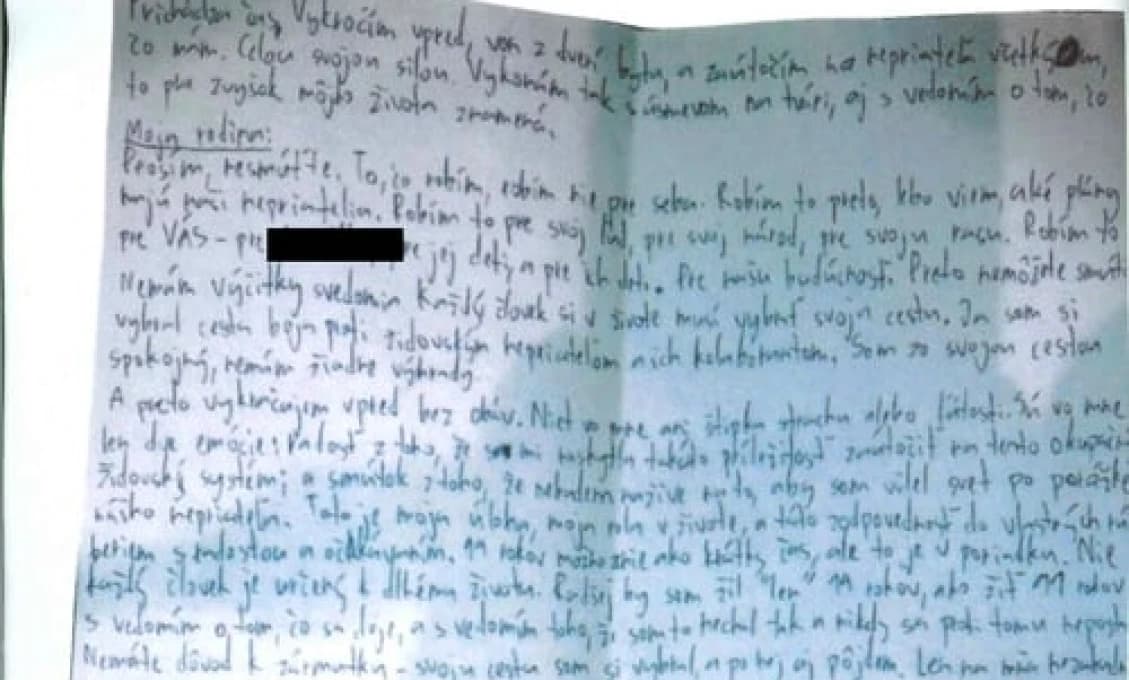 Prichádza čas. Vykročím vpred, von z dverí bytu, a zaútočím na nepriateľa všetkým,
čo mám. Celou svojou silou. Vykonám tak s úsmevom na tvári, aj s vedomím o tom, čo
to pre zvyšok môjho života znamená.
Moja rodina:
Prosím, nesmúťte. To, čo robím, robím nie pre seba. Robím to preto, lebo viem, aké plány
majú naši nepriatelia. Robím to pre svoj ľud, pre svoj národ, pre svoju rasu. Robím to
pre VÁS - pre jej deti, a pre ich deti. Pre našu budúcnosť. Preto nemôžete
Nemám výčitky svedomia. Každý človek si v živote musí vybrať svoju cestu. Ja som si
vybral cestu boja proti židovským nepriateľom a ich kolaborantom. Som so svojou cestou
spokojný, nemám žiadne výhrady.
A preto vykračujem vpred bez obáv. Niet vo mne ani štipka strachu alebo ľútosti. Sú vo mne
len dve emócie: Radosť z toho, že sa mi naskytla takáto príležitosť zaútočiť na tento
židovský systém; a smútok z toho, že nebudem nažive na to, aby som videl svet po porážke
nášho nepriateľa. Toto je moja úloha, moja rola v živote, a túto zodpovednosť do vlastných
beriem s radosťou a očakávaním. 19 rokov možno znie ako krátky čas, ale to je v poriadku. Nie
každý človek je určený k dlhému životu. Radšej by som žil "len" 19 rokov, ako žiť 91 rokov
s vedomím o tom, čo sa deje, a s vedomím toho, že som to nechal tak a nikdy sa proti tomu
Nemáte dôvod k zármutku - svoju cestu som si vybral, a po nej aj pôjdem. Len na mňa